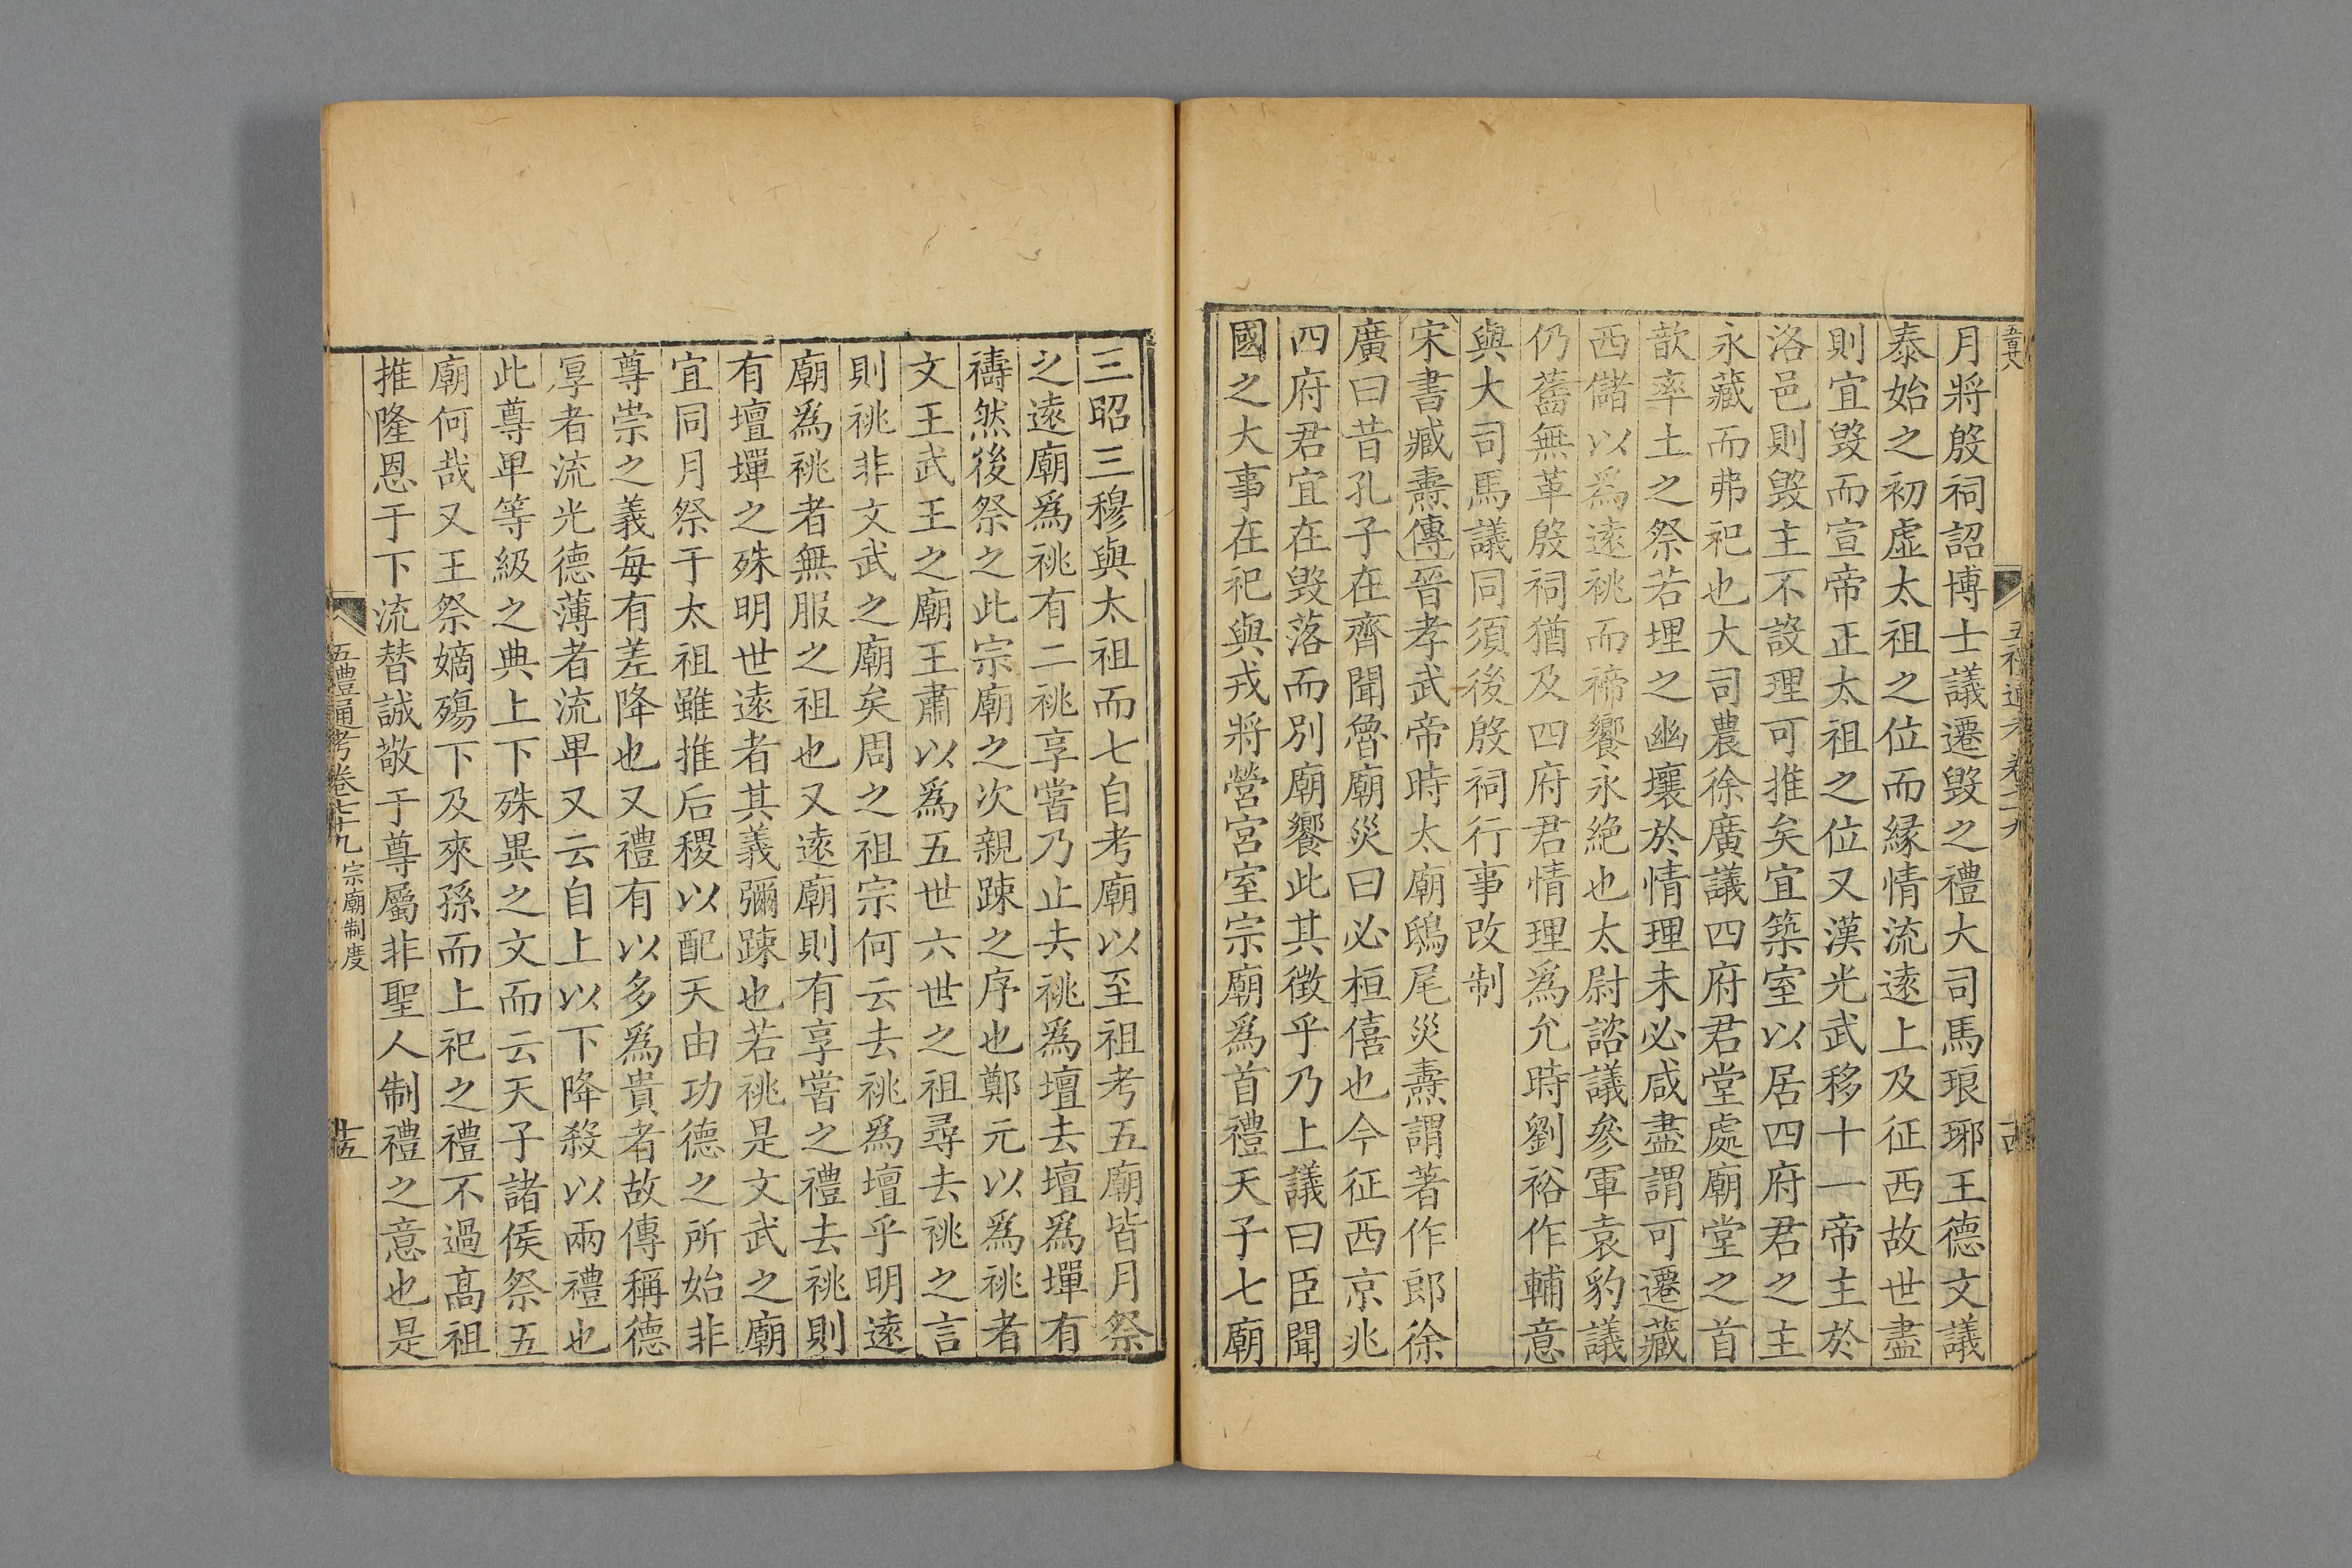 月將殷祠詔博士議遷毀之禮大司馬琅琊王德文議
泰始之初虛太祖之位而緣情流遠上及征西故世盡
則宜毀而宣帝正太祖之位又漢光武移十一帝主於
洛邑則毀主不設理可推矣宜築室以居四府君之主
永藏而弗祀也大司農徐廣議四府君堂處廟堂之首
歆率土之祭若埋之幽壤於情理未必咸盡謂可遷藏
西儲以爲遠祧而禘饗永絶也太尉諮議參軍袁豹議
仍舊無革殷祠猶及四府君情理爲允時劉裕作輔意
與大司馬議同須後殷祠行事改制
宋書臧燾傳晉孝武帝時太廟鴟尾災燾謂著作郎徐
廣曰昔孔子在齊聞魯廟災曰必桓僖也今征西京兆
四府君宜在毀落而別廟饗此其徵乎乃上議曰臣聞
國之大事在祀與戎將營宮室宗廟爲首禮天子七廟
三昭三穆與太祖而七自考廟以至祖考五廟皆月祭
之遠廟爲祧有二祧享嘗乃止去祧爲壇去壇爲墠有
禱然後祭之此宗廟之次親踈之序也鄭元以爲祧者
文王武王之廟王肅以爲五世六世之祖尋去祧之言
則祧非文武之廟矣周之祖宗何云去祧爲壇乎明遠
廟爲祧者無服之祖也又遠廟則有享嘗之禮去祧則
有壇墠之殊明世遠者其義彌踈也若祧是文武之廟
宜同月祭于太祖雖推后稷以配天由功德之所始非
尊崇之義每有差降也又禮有以多爲貴者故傳稱德
厚者流光德薄者流卑又云自上以下降殺以兩禮也
此尊卑等級之典上下殊異之文而云天子諸侯祭五
廟何哉又王祭嫡殤下及來孫而上祀之禮不過高祖
推隆恩于下流替誠敬于尊屬非聖人制禮之意也是
五禮通考卷七十九 宗廟制度 十五